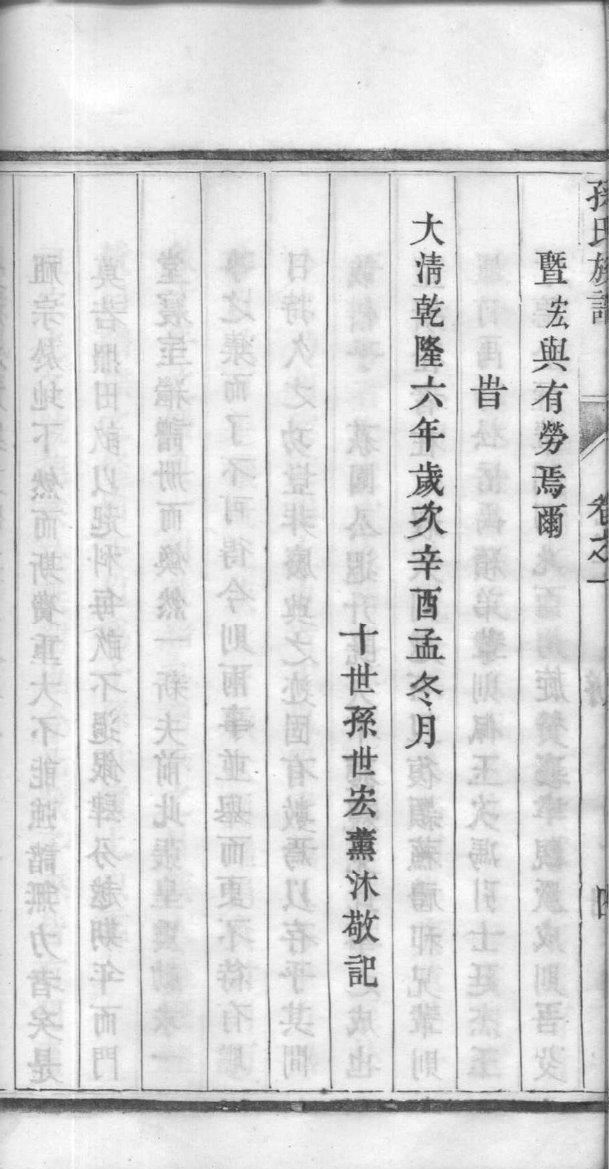 孫氏族譜 卷之一
暨宏與有勞焉爾
旹
大清乾隆六年歲次辛酉孟冬月
十世孫世宏薰沐敬記